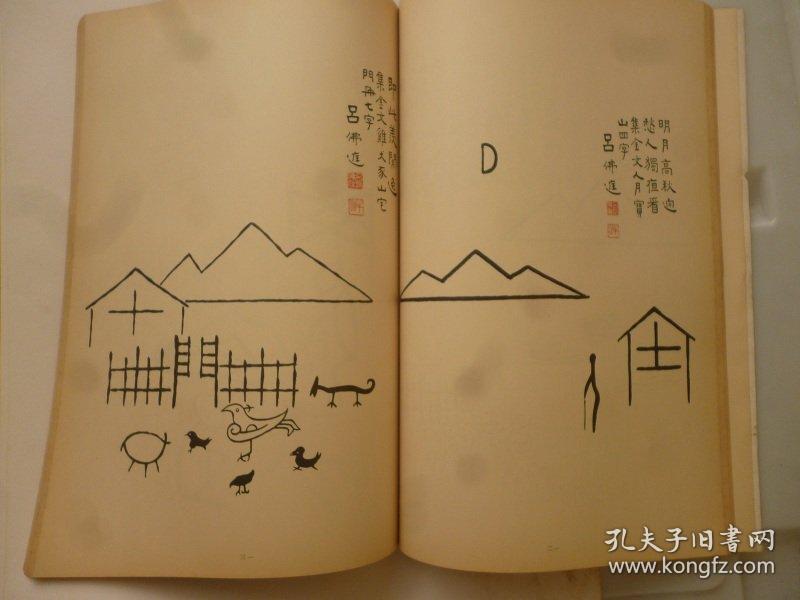 明月高秋迥
愁人獨夜看
集金文人月寶
山四字
呂佛庭
即此羨閒逸
集金文雞犬豕山宅
門冊七字
呂佛庭
孔夫子旧書网
www.kongfz.com